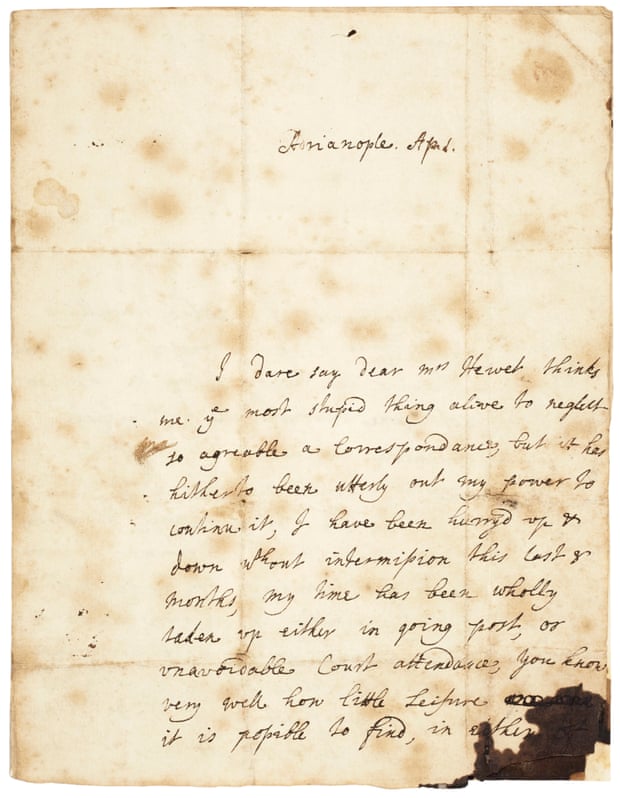 Adrianople. Ap. 1.
I dare say dear mrs Hewet thinks
me ye most stupid thing alive to neglect
so agreable a Correspondance, but it has
hitherto been utterly out my power to
continu it, I have been hurry'd up &
down wthout intermission this last 8
months, my time has been wholly
taken up either in going post, or
unavoidable Court attendance, You know
very well how little Leisure
it is possible to find, in either of